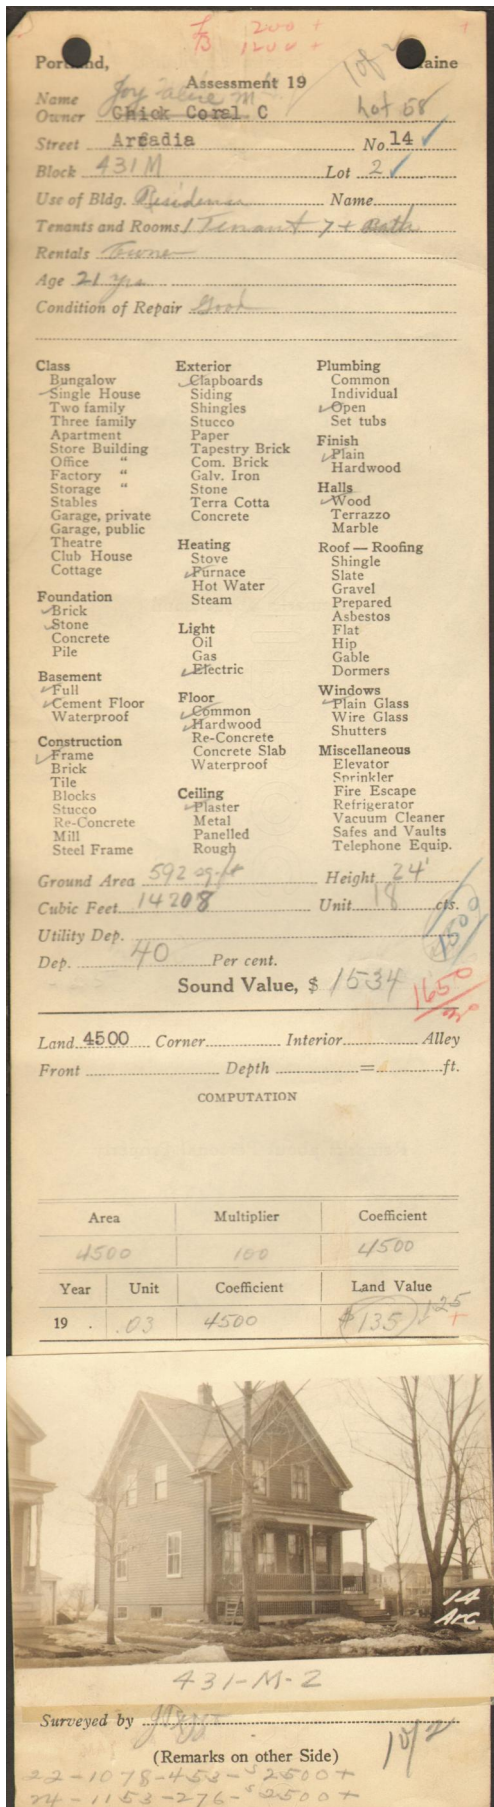 L 200 +
B 1200 +
Portland, Maine
1 of 2
Assessment 19
Joy Alice M
Name
Owner Chick Coral C Lot 58
Street Arcadia No. 14
Block 431 M Lot 2
Use of Bldg. Residence Name
Tenants and Rooms 1 Tenant 7 + Bath
Rentals Owner
Age 21 yrs
Condition of Repair Good
Class
Bungalow
Single House
Two family
Three family
Apartment
Store Building
Office "
Factory "
Storage "
Stables
Garage, private
Garage, public
Theatre
Club House
Cottage
Foundation
Brick
Stone
Concrete
Pile
Basement
Full
Cement Floor
Waterproof
Construction
Frame
Brick
Tile
Blocks
Stucco
Re-Concrete
Mill
Steel Frame
Exterior
Clapboards
Siding
Shingles
Stucco
Paper
Tapestry Brick
Com. Brick
Galv. Iron
Stone
Terra Cotta
Concrete
Heating
Stove
Furnace
Hot Water
Steam
Light
Oil
Gas
Electric
Floor
Common
Hardwood
Re-Concrete
Concrete Slab
Waterproof
Ceiling
Plaster
Metal
Panelled
Rough
Plumbing
Common
Individual
Open
Set tubs
Finish
Plain
Hardwood
Halls
Wood
Terrazzo
Marble
Roof — Roofing
Shingle
Slate
Gravel
Prepared
Asbestos
Flat
Hip
Gable
Dormers
Windows
Plain Glass
Wire Glass
Shutters
Miscellaneous
Elevator
Sprinkler
Fire Escape
Refrigerator
Vacuum Cleaner
Safes and Vaults
Telephone Equip.
Ground Area 592 sq. ft Height 24'
Cubic Feet 14208 Unit 18 cts.
1500
Utility Dep.
Dep. 40 Per cent.
Sound Value, $ 1534
1650
Land 4500 Corner Interior Alley
Front Depth = ft.
COMPUTATION
Area Multiplier Coefficient
4500 100 4500
Year Unit Coefficient Land Value
19 . .03 4500 $135 125 +
14
Arc
431-M-2
Surveyed by
(Remarks on other Side)
22-1078-453-$2500+
24-1153-276-$2500+